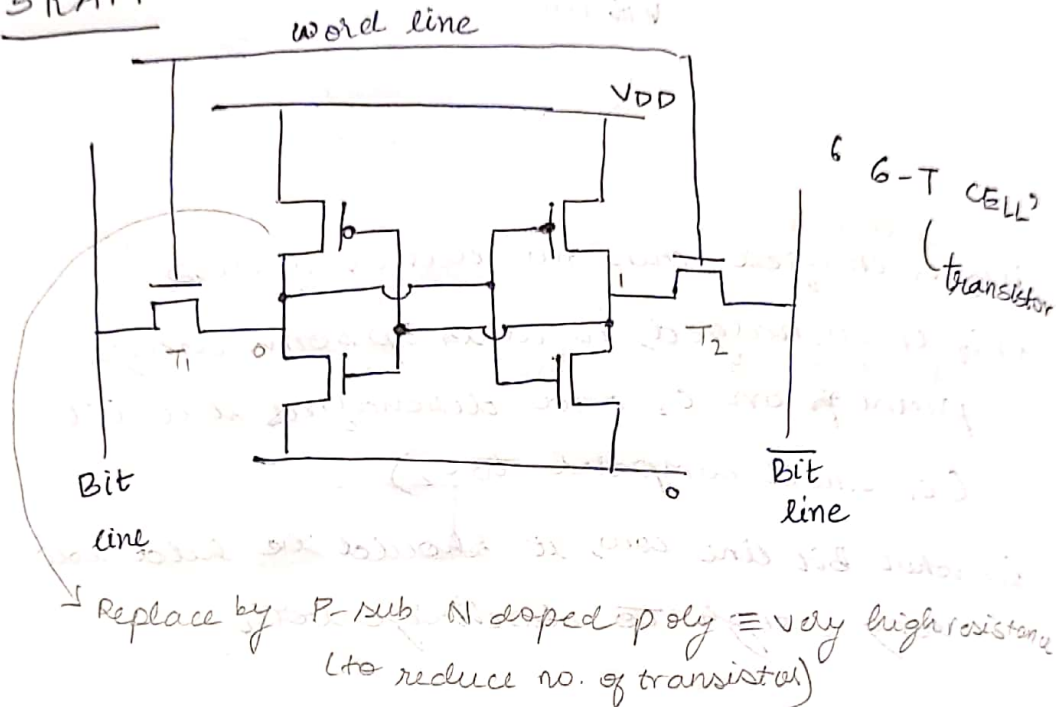 SRAM
word line
VDD
' 6-T CELL'
transistor
1
T1
0
T2
Bit
line
0
B̅i̅t̅
line
Replace by P-sub N doped poly ≡ very high resistance
(to reduce no. of transistor)